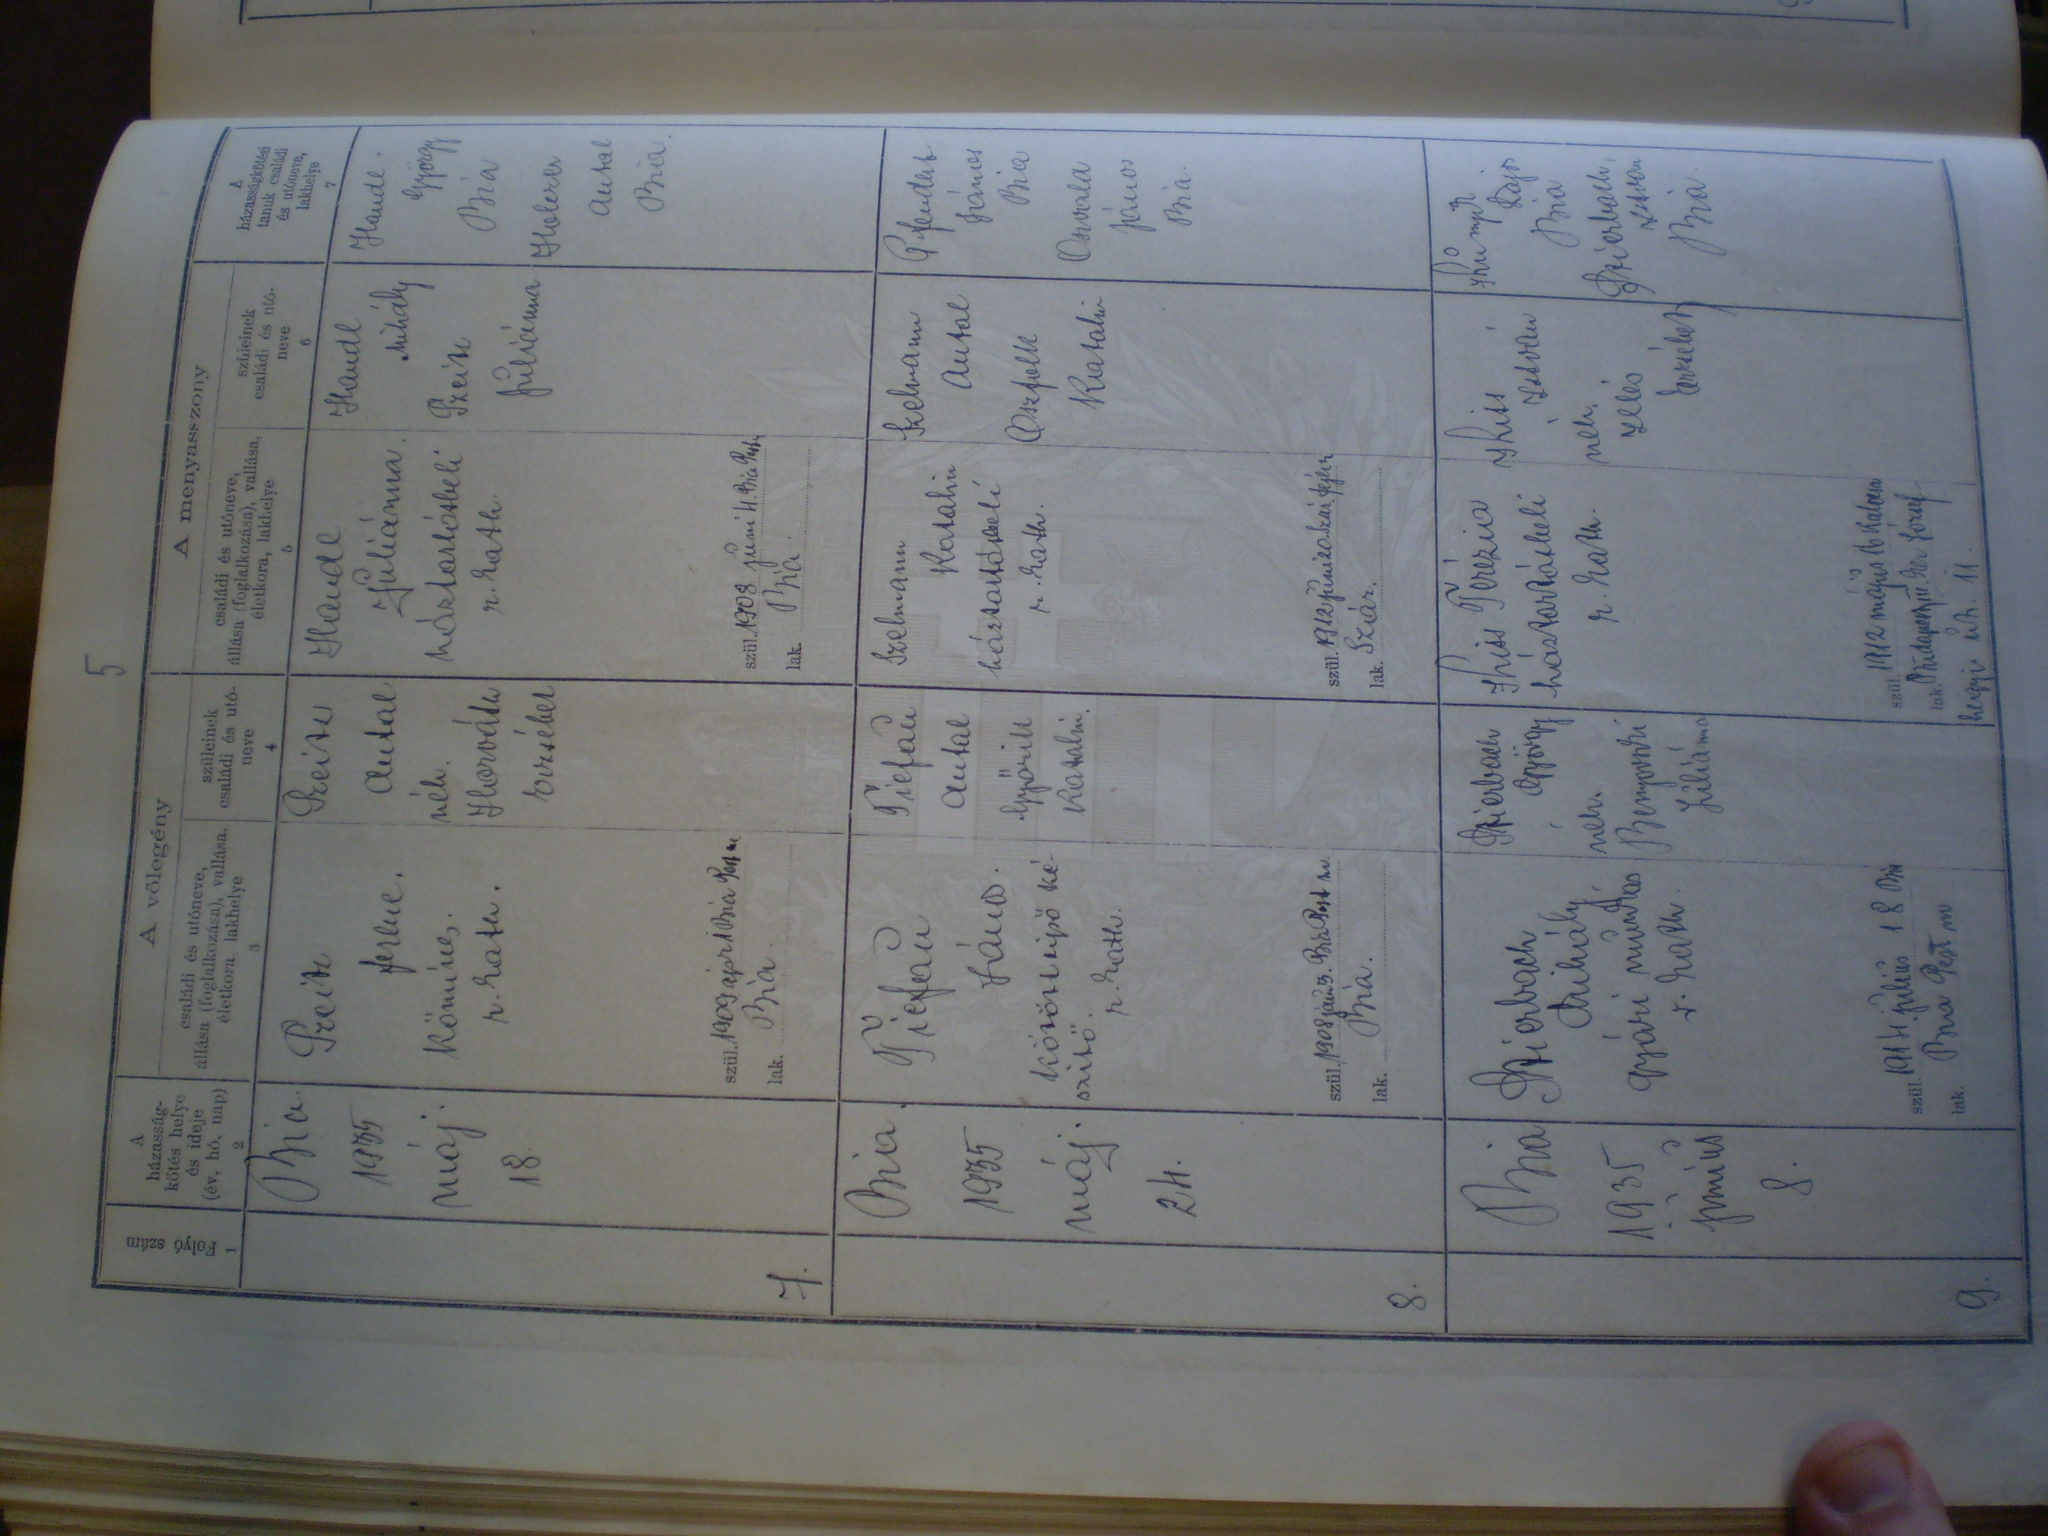 5
A vőlegény
A menyasszony
Folyó
szám
1
A
házasság-
kötés helye
és ideje
(év, hó, nap)
2
családi és utóneve,
állása (foglalkozása), vallása
életkora lakhelye
3
szüleinek
családi és utó-
neve
4
családi és utóneve,
állása (foglalkozása), vallása,
életkora, lakhelye
5
szüleinek
családi és utó-
neve
6
A
házasságkötési
tanuk családi
és utóneve,
lakhelye
7
7.
Bia.
1935
máj.
18.
ferenc.
Kőműves,
r. kath.
szül. 1909 ápr 1 Bia Pest m
lak. Bia.
Antal
néh.
Horváth
Erzsébet
Handl
Juliánna.
háztartásbeli
r. kath.
szül. 1908 juni 4. Bia Pest
lak. Bia.
Handl
Mihály
Juliánna
Handl.
György
Bia
Holczer
Antal
Bia.
8.
Bia.
1935
máj.
24.
János.
ké-
szitő.
r. kath.
szül. 1908 jan 3. Bia Pest m.
lak. Bia.
Antal
Györik
Katalin.
Szelmann
Katalin
háztartásbeli
r. kath.
szül. 1912 juni 20 Szár. Fejér
lak. Szár.
Szelmann
Antal
Katalin
János
Bia
János
Bia.
9.
Bia
1935
június
8.
Stierbach
Mihály
gyári munkás
r. kath.
szül. 1914 július 18 Bia
lak. Bia Pest m
Stierbach
György
néh.
Juliánna
Kiss Terézia
háztartásbeli
r. kath.
szül. 1912 május 16
lak. József
hegyi út. 11.
Kiss
István
néh.
Erzsébet
Lajos
Bia
Stierbach
István
Bia.